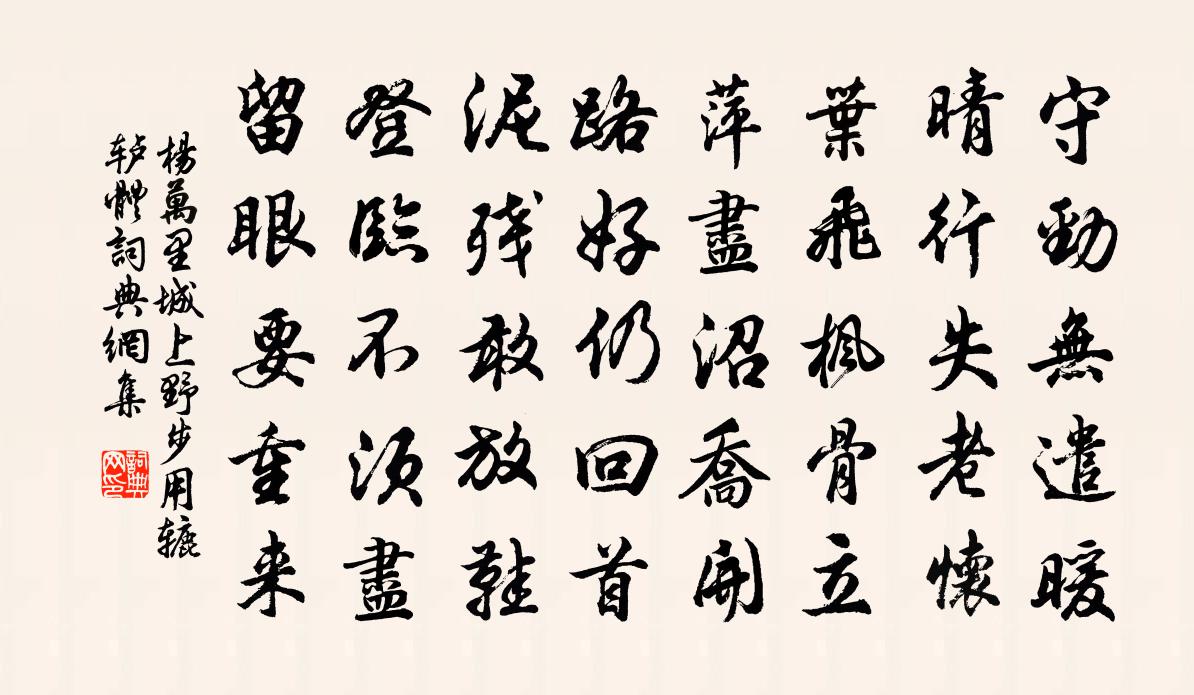 守勁無遣暖
晴行失老懷
葉飛楓骨立
萍盡沼喬開
路好仍回首
泥殘敢放鞋
登臨不須盡
留眼要重来
楊萬里城上野步用辘
轳體詞典網集
詞典网印